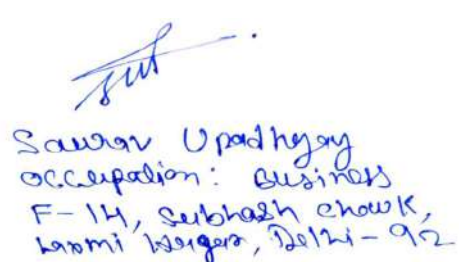 Saurav Upadhyay
Occupation: Business
F-14, Subhash Chowk,
Laxmi Nagar, Delhi - 92